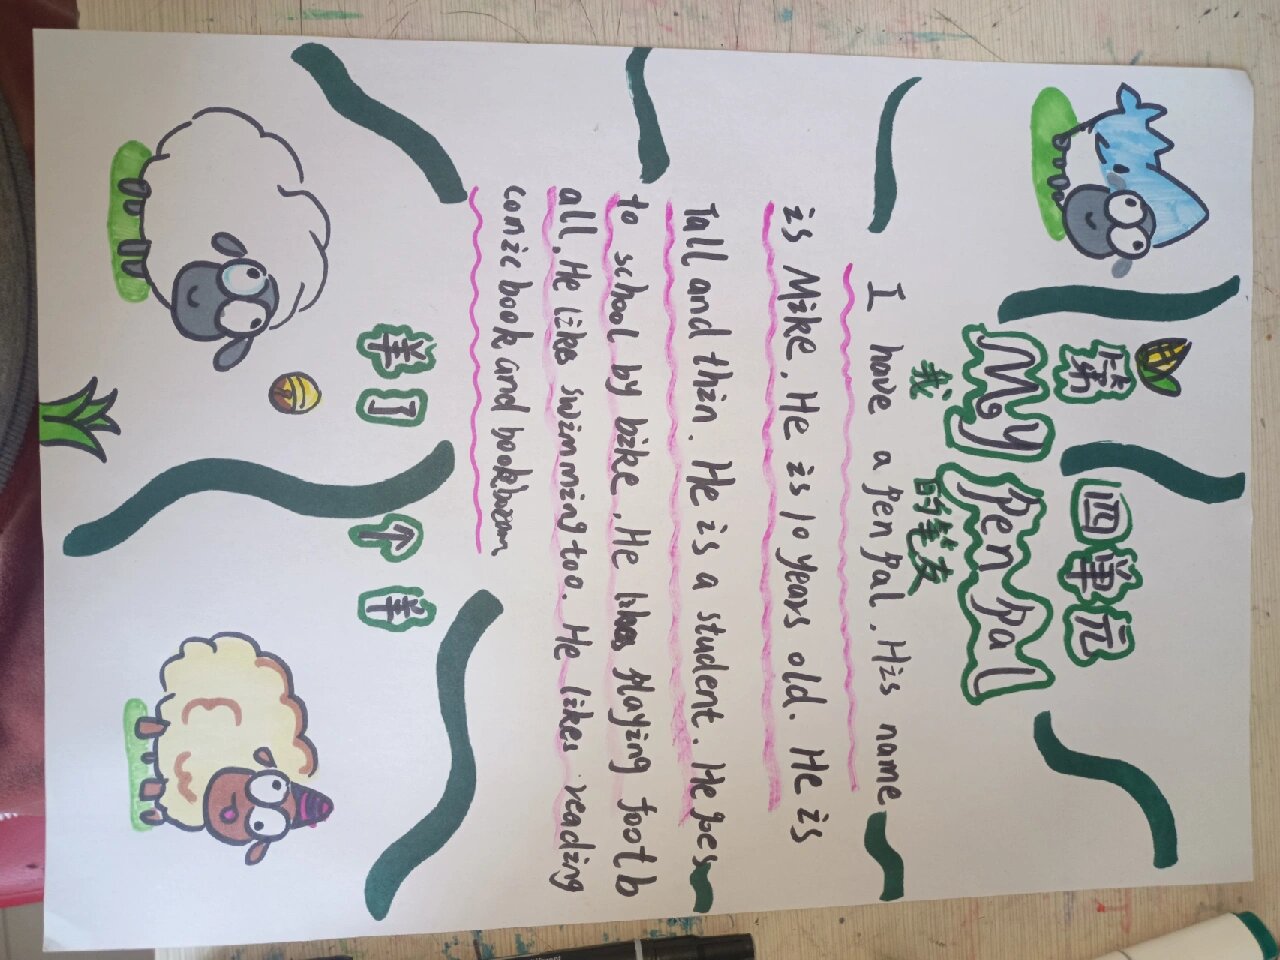 第四单元
My Pen Pal
我的笔友
I have a Pen Pal. His name
is Mike. He is 10 years old. He is
Tall and thin. He is a student. He goes
to school by bike. He likes playing footb
all. He like swimming too. He likes reading
conic book and
羊了个羊